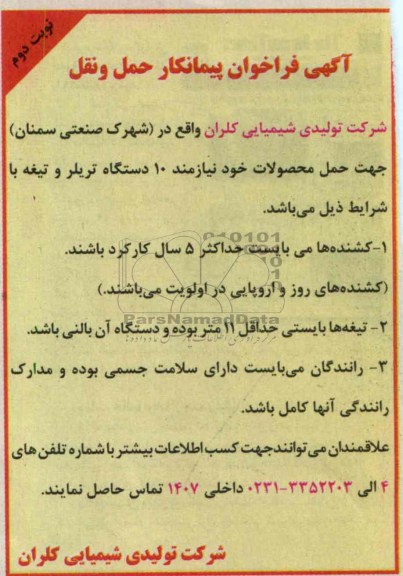 نوبت دوم
آگهی فراخوان پیمانکار حمل ونقل
شرکت تولیدی شیمیایی کلران واقع در (شهرک صنعتی سمنان)
جهت حمل محصولات خود نیازمند ۱۰ دستگاه تریلر و تیغه با
شرایط ذیل می‌باشد.
۱-کشنده‌ها می بایست حداکثر ۵ سال کارکرد باشند.
(کشنده‌های روز و اروپایی در اولویت می‌باشند.)
ParsNamadData
۲- تیغه‌ها بایستی حداقل ۱۱ متر بوده و دستگاه آن بالنی باشد.
۳- رانندگان می‌بایست دارای سلامت جسمی بوده و مدارک
رانندگی آنها کامل باشد.
علاقمندان می‌توانند جهت کسب اطلاعات بیشتر با شماره تلفن های
۴ الی ۳۳۵۲۲۰۳-۰۲۳۱ داخلی ۱۴۰۷ تماس حاصل نمایند.
شرکت تولیدی شیمیایی کلران